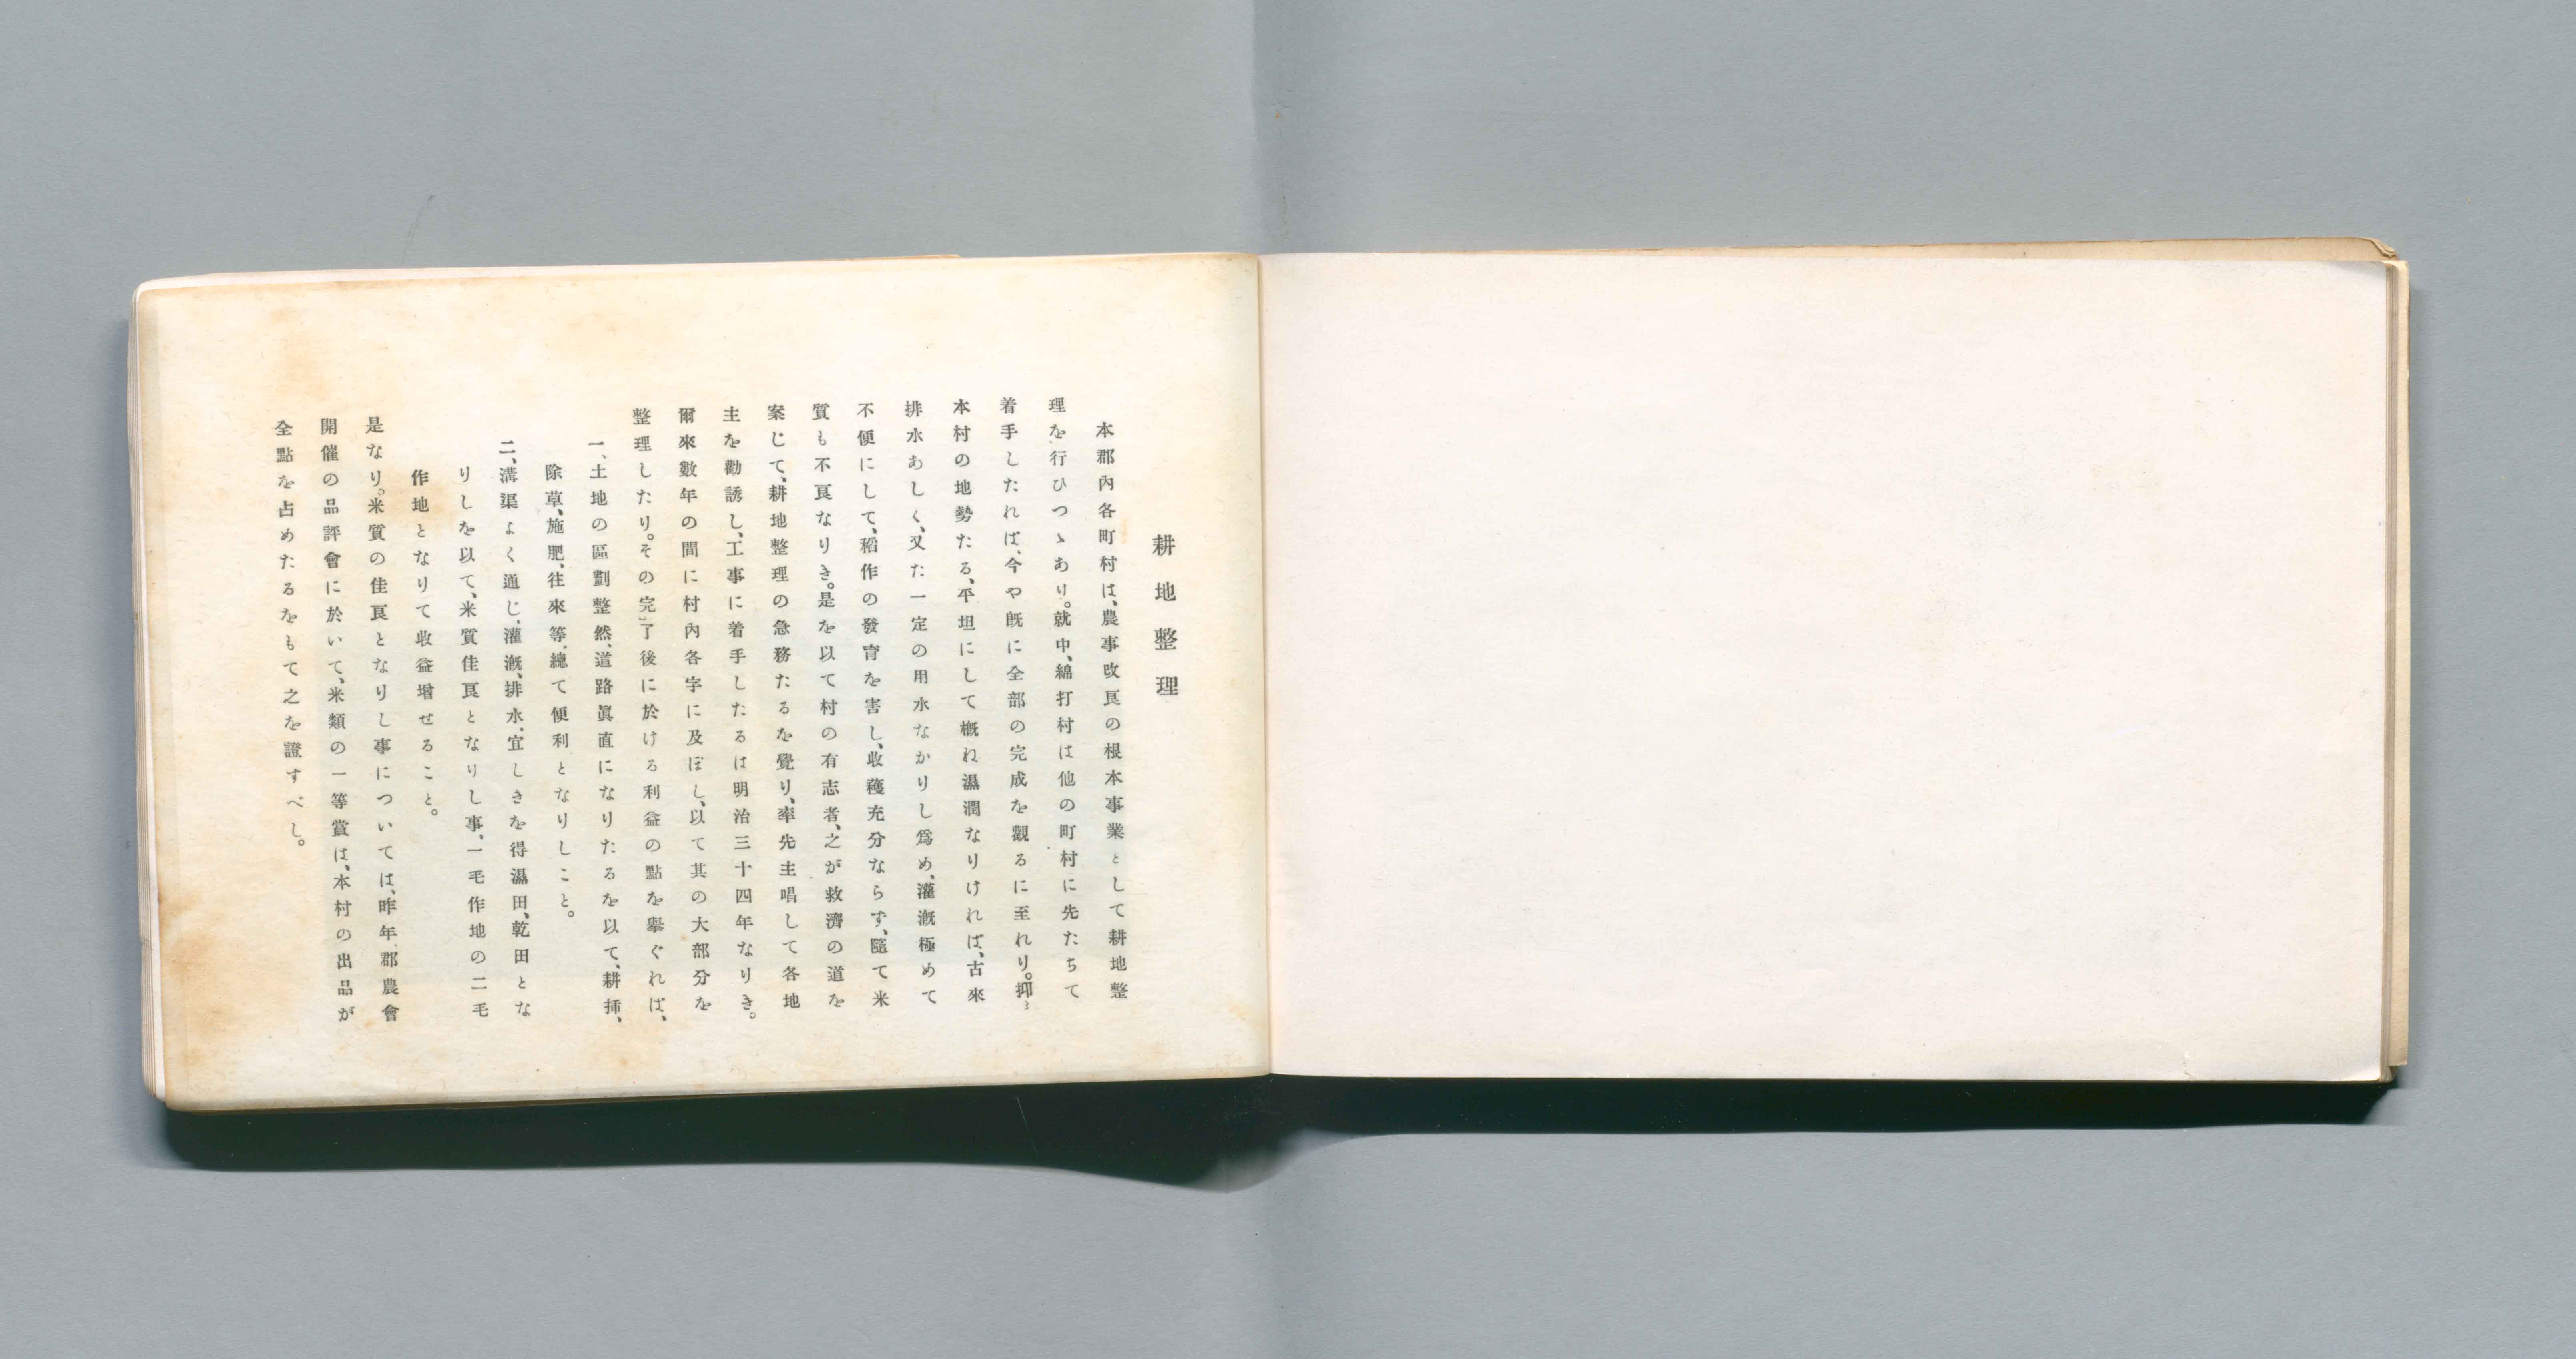 耕地整理
本郡內各町村は、農事改良の根本事業として耕地整
理を行ひつゝあり。就中、綿打村は他の町村に先たちて
着手したれば、今や旣に全部の完成を觀るに至れり。抑〻
本村の地勢たる、平坦にして槪ね濕潤なりければ、古來
排水あしく、又た一定の用水なかりし爲め、灌漑極めて
不便にして、稻作の發育を害し、收穫充分ならず、隨て米
質も不良なりき。是を以て村の有志者、之が救濟の道を
案じて、耕地整理の急務たるを覺り、率先主唱して各地
主を勸誘し、工事に着手したるは明治三十四年なりき。
爾來數年の間に村內各字に及ぼし、以て其の大部分を
整理したり。その完了後に於ける利益の點を擧ぐれば、
一、土地の區劃整然、道路眞直になりたるを以て、耕揷、
除草、施肥、往來等、總て便利となりしこと。
二、溝渠よく通じ、灌漑、排水、宜しきを得濕田、乾田とな
りしを以て、米質佳良となりし事、一毛作地の二毛
作地となりて收益增せること。
是なり。米質の佳良となりし事については、昨年、郡農會
開催の品評會に於いて、米類の一等賞は、本村の出品が
全點を占めたるをもて之を證すべし。